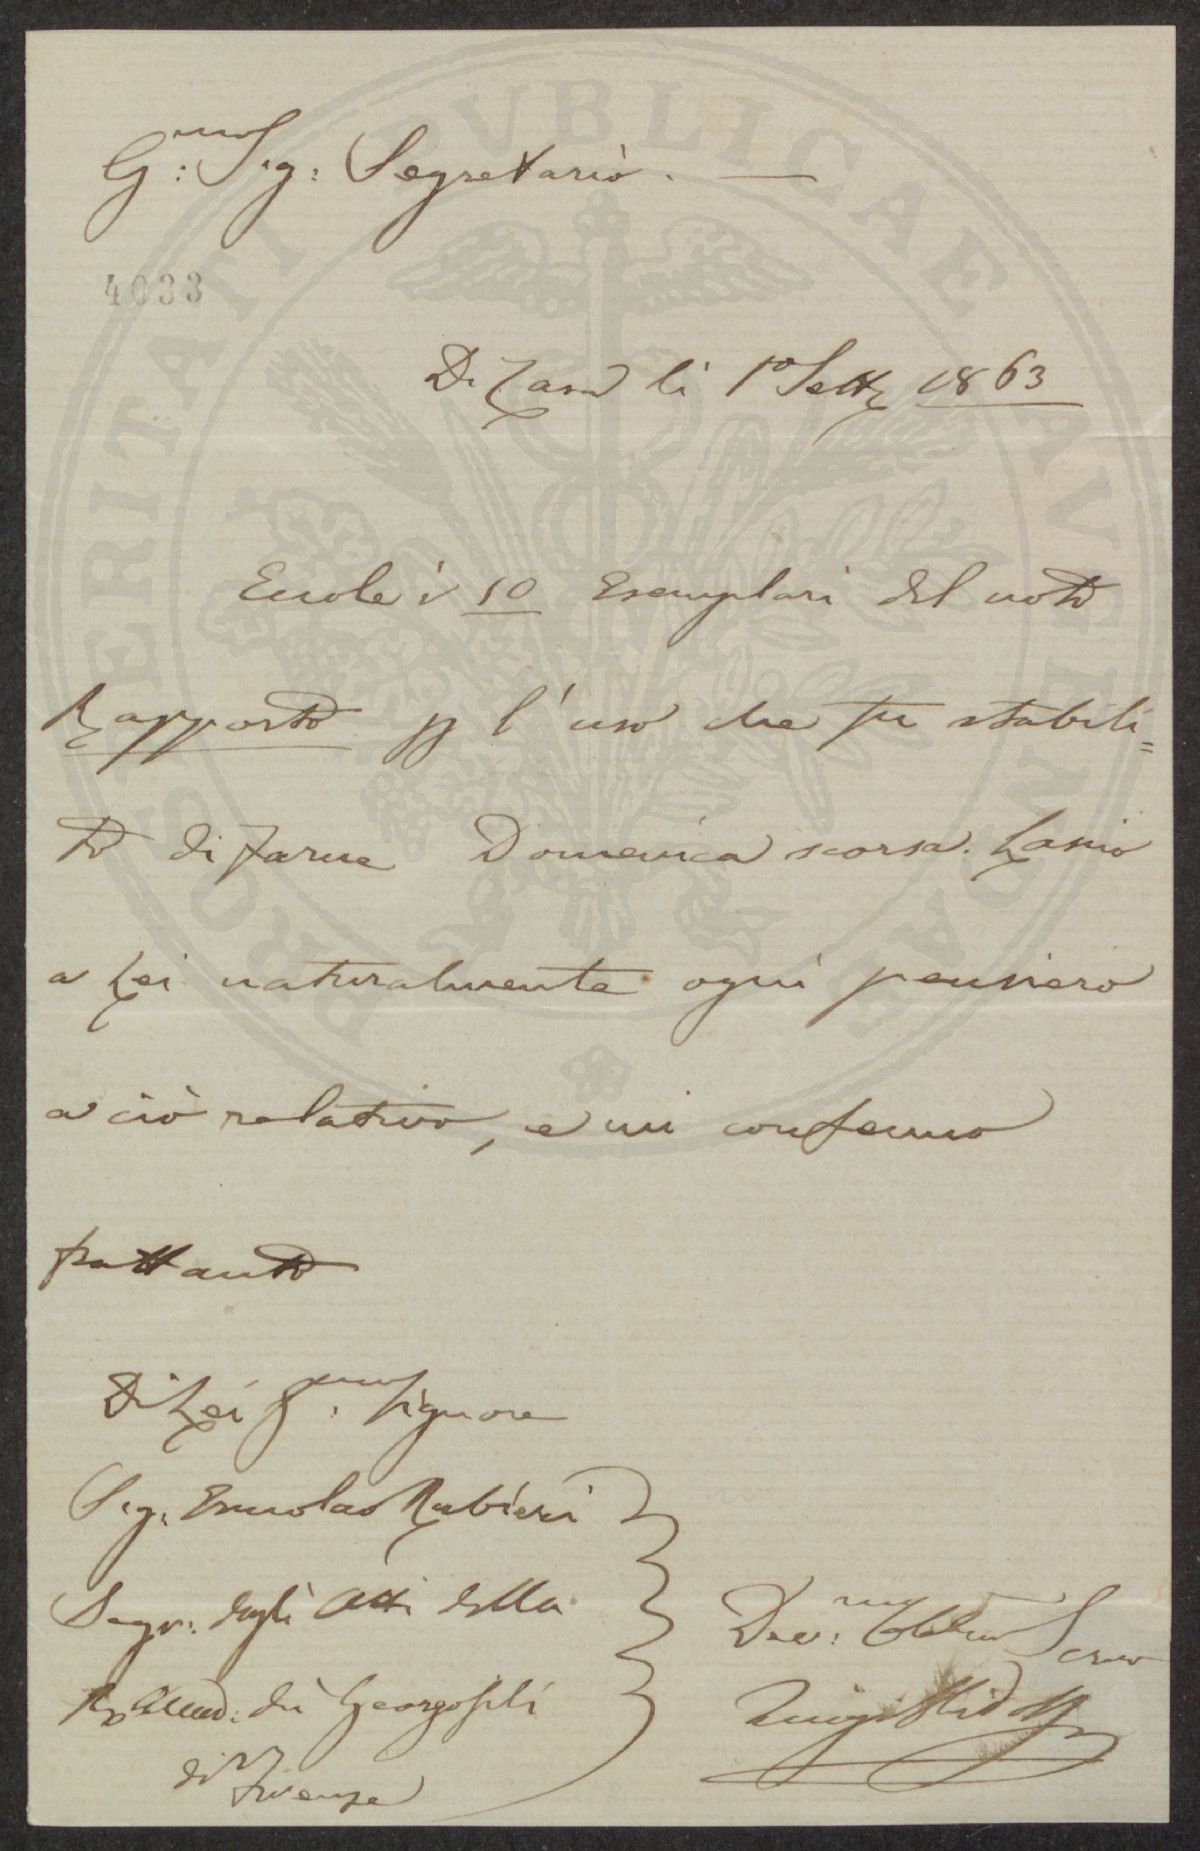 G:mo Sig: Segretario. —
4033
Di Casa li 1º Sette 1863
Eccole i 50 Esemplari del noto
Rapporto p l'uso che fu stabili=
to di farne Domenica scorsa. Lascio
a Lei naturalmente ogni pensiero
a ciò relativo, e mi confermo
frattanto
Di Lei G:mo Signore
Sig: Ermolao Rubieri
Segr: degli Atti della
R. Accad: dei Georgofili
di Firenze
Dev:mo Obbmo Servo
Luigi
PROSPERITATI PVBLICAE AVGENDAE